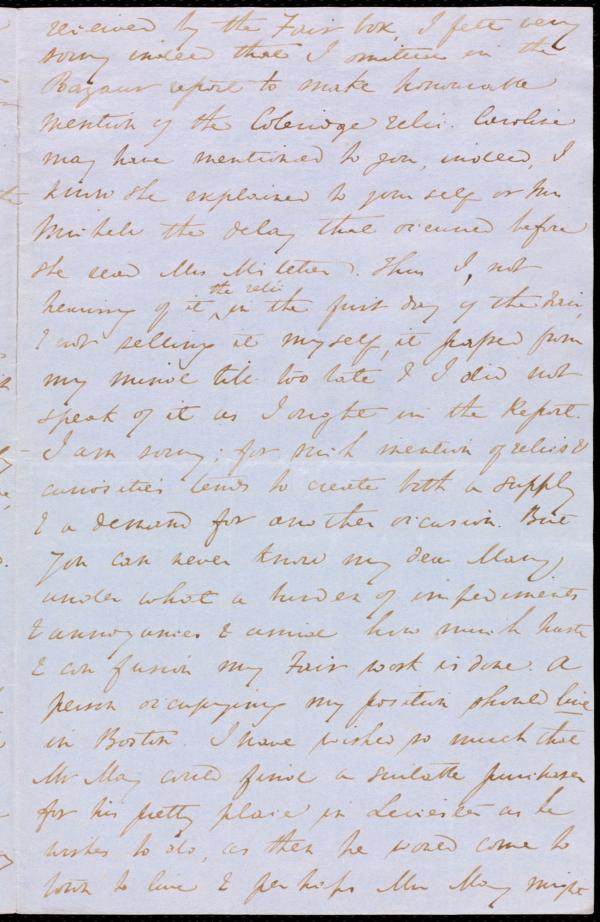 received by the Fair box, I felt very
sorry indeed that I omitted in the
Bazaar report to make honourable
mention of the Coleridge relic. Caroline
may have mentioned to you, indeed, I
know she explained to yourself or Mr
Michell the delay that occurred before
she read Mrs Mitchell. Thus I, not
hearing of it the relic in the first day of the Fair,
& not selling it myself, it passed from
my mind till too late & I did not
speak of it as I ought in the Report.
I am sorry; for such mention of relics &
curiosities tends to create both a supply
& a demand for another occasion. But
you can never know my dear Mary,
under what a burden of impediments
& annoyances & amid how much haste
& confusion my Fair work is done. A
person occupying my position should live
in Boston. I have wished so much that
Mr May could find a suitable purchaser
for his pretty place in Leicester as he
wishes to do, as then he would come to
town to live & perhaps Mrs May might